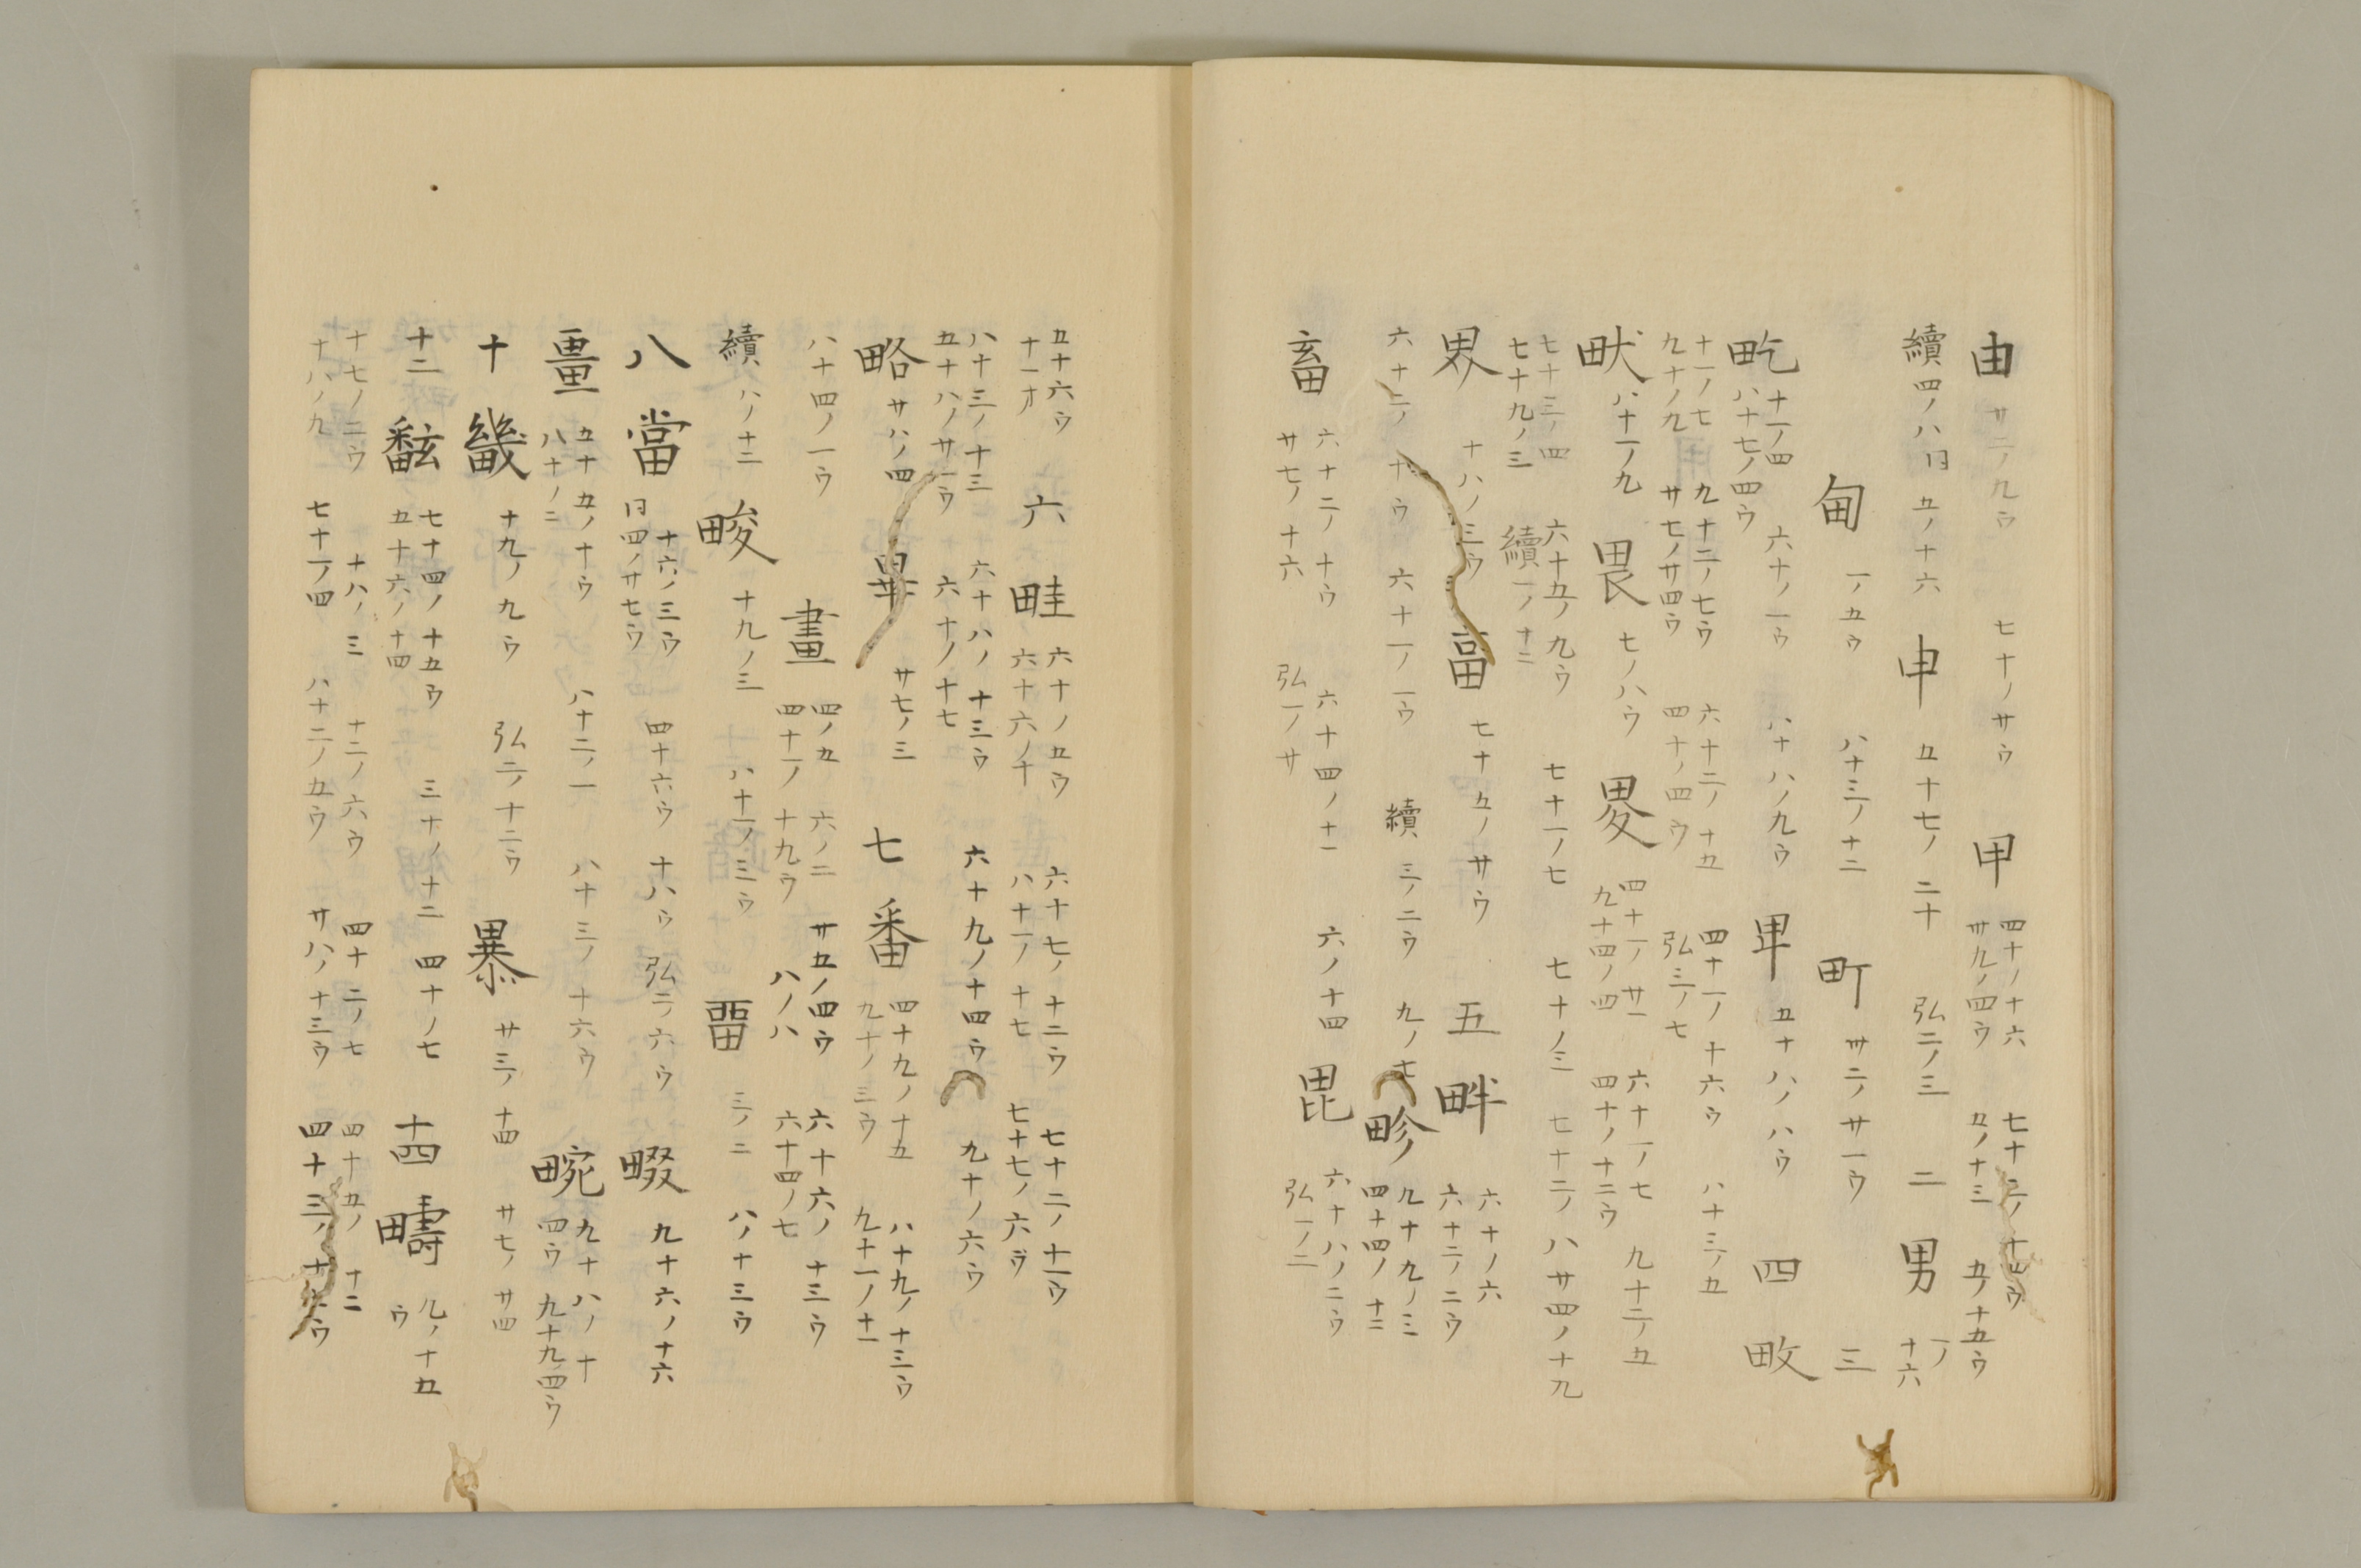 由 廿二ノ九ウ 七十ノ廿ウ 甲 四十ノ十六 七十三ノ十四ウ
卅九ノ四ウ 五ノ十三 五ノ十五ウ
續四ノ八 五ノ十六 申 五十七ノ二十 弘二ノ三 二 男 一ノ十六
甸 一ノ五ウ 八十三ノ十二 町 卅二ノ廿一ウ 三
畍 十一ノ四 六十ノ一ウ 八十八ノ九ウ 五十八ノ八ウ 四 畋
八十七ノ四ウ
十一ノ七 九十二ノ七ウ 六十二ノ十五 四十一ノ十六ウ 八十三ノ五
九十ノ九 廿七ノ廿四ウ 四十ノ四ウ 弘三ノ七
畎 八十一ノ九 畏 七ノ八ウ 畟 四十一ノ廿一 六十一ノ七 九十二ノ五
九十四ノ四 四十ノ十二ウ
七十三ノ四 六十五ノ九ウ 七十一ノ七 七十ノ三 七十二ノ八 廿四ノ十九
七十九ノ三 續一ノ十二
界 十八ノ三ウ 畐 七十五ノ廿ウ 五 畔 六十ノ六
六十二ノ二ウ
六十二ノ十ウ 六十一ノ一ウ 續三ノ二ウ 九ノ七 畛 九十九ノ三
四十四ノ十二
畜 六十二ノ十ウ 六十四ノ十一 六ノ十四 毘 六十八ノ二ウ
廿七ノ十六 弘一ノ廿 弘一ノ二
五十六ウ 六 畦 六十ノ五ウ 六十七ノ十二ウ 七十二ノ十一ウ
十一オ 六十六ノ十 八十一ノ十七 七十七ノ六
八十三ノ十三 六十八ノ十三ウ 六十九ノ十四ウ 九十ノ六ウ
五十八ノ廿一ウ 六十ノ十七
略 廿八ノ四 畢 廿七ノ三 七 番 四十九ノ十五 八十九ノ十三ウ
九十ノ三ウ 九十一ノ十一
八十四ノ一ウ 畫 四ノ五 六ノ二 廿五ノ四ウ 六十六ノ十三ウ
四十一ノ十九ウ 八ノ八 六十四ノ七
續八ノ十三 畯 十九ノ三 八十一ノ三ウ 畱 三ノ二 八ノ十三ウ
八 當 十六ノ三ウ 四十六ウ 十八ウ 弘二ノ六ウ 畷 九十六ノ十六
四ノ廿七ウ
畺 五十五ノ十ウ 八十二ノ一 八十三ノ十六ウ 畹 九十八ノ十
八十ノ二 四ウ 九十九ノ四ウ
十 畿 十九ノ九ウ 弘二ノ十二ウ 暴 廿三ノ十四 廿七ノ廿四
十二 七十四ノ十五ウ 三十ノ十二 四十ノ七 十四 疇 九ノ十五
五十六ノ十四 ウ
十七ノ二ウ 十八ノ三 十二ノ六ウ 四十二ノ七 四十五ノ十二
十八ノ九 七十一ノ四 八十二ノ五ウ 廿八ノ十三ウ 四十三ノ